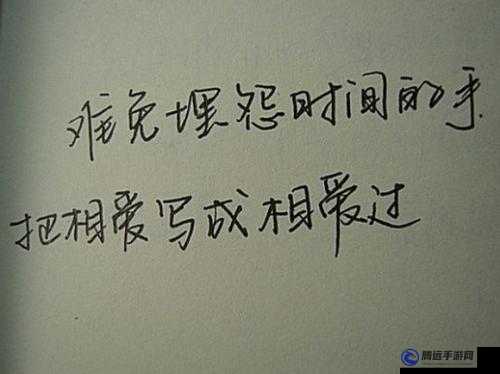 难免埋怨时间的手
把相爱写成相爱过
腾远手游网